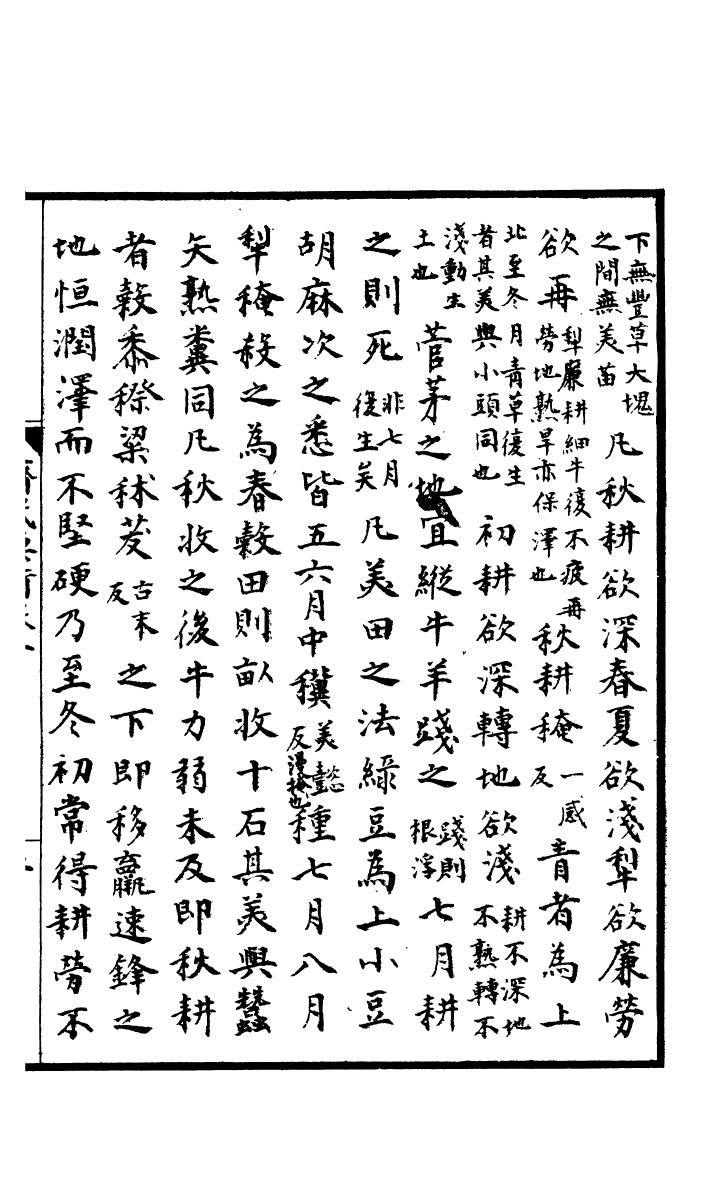 下無豐草大塊之間無美苗凡秋耕欲深春夏欲淺犁欲廉勞
欲再犁廉耕細牛復不疲再勞地熟旱亦保澤也秋耕䅖一感反青者為上
北至冬月青草復生者其美與小頭同也初耕欲深轉地欲淺耕不深地不熟轉不
淺動生土也菅茅之地宜縱牛羊踐之踐則根浮七月耕
之則死非七月復生矣凡美田之法綠豆為上小豆
胡麻次之悉皆五六月中穙美懿反漫掩也種七月八月
犁䅖殺之為春穀田則畝收十石其美與蠶
矢熟糞同凡秋收之後牛力弱未及即秋耕
者穀黍穄粱秫茇古末反之下即移羸速鋒之
地恒潤澤而不堅硬乃至冬初常得耕勞不